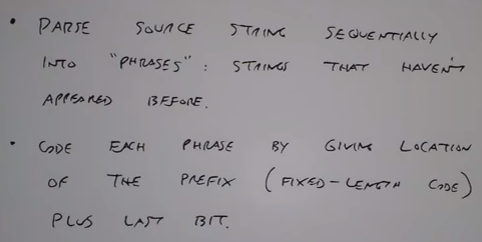 • PARSE SOURCE STRING SEQUENTIALLY
INTO "PHRASES": STRINGS THAT HAVEN'T
APPEARED BEFORE.
• CODE EACH PHRASE BY GIVING LOCATION
OF THE PREFIX (FIXED-LENGTH CODE)
PLUS LAST BIT.